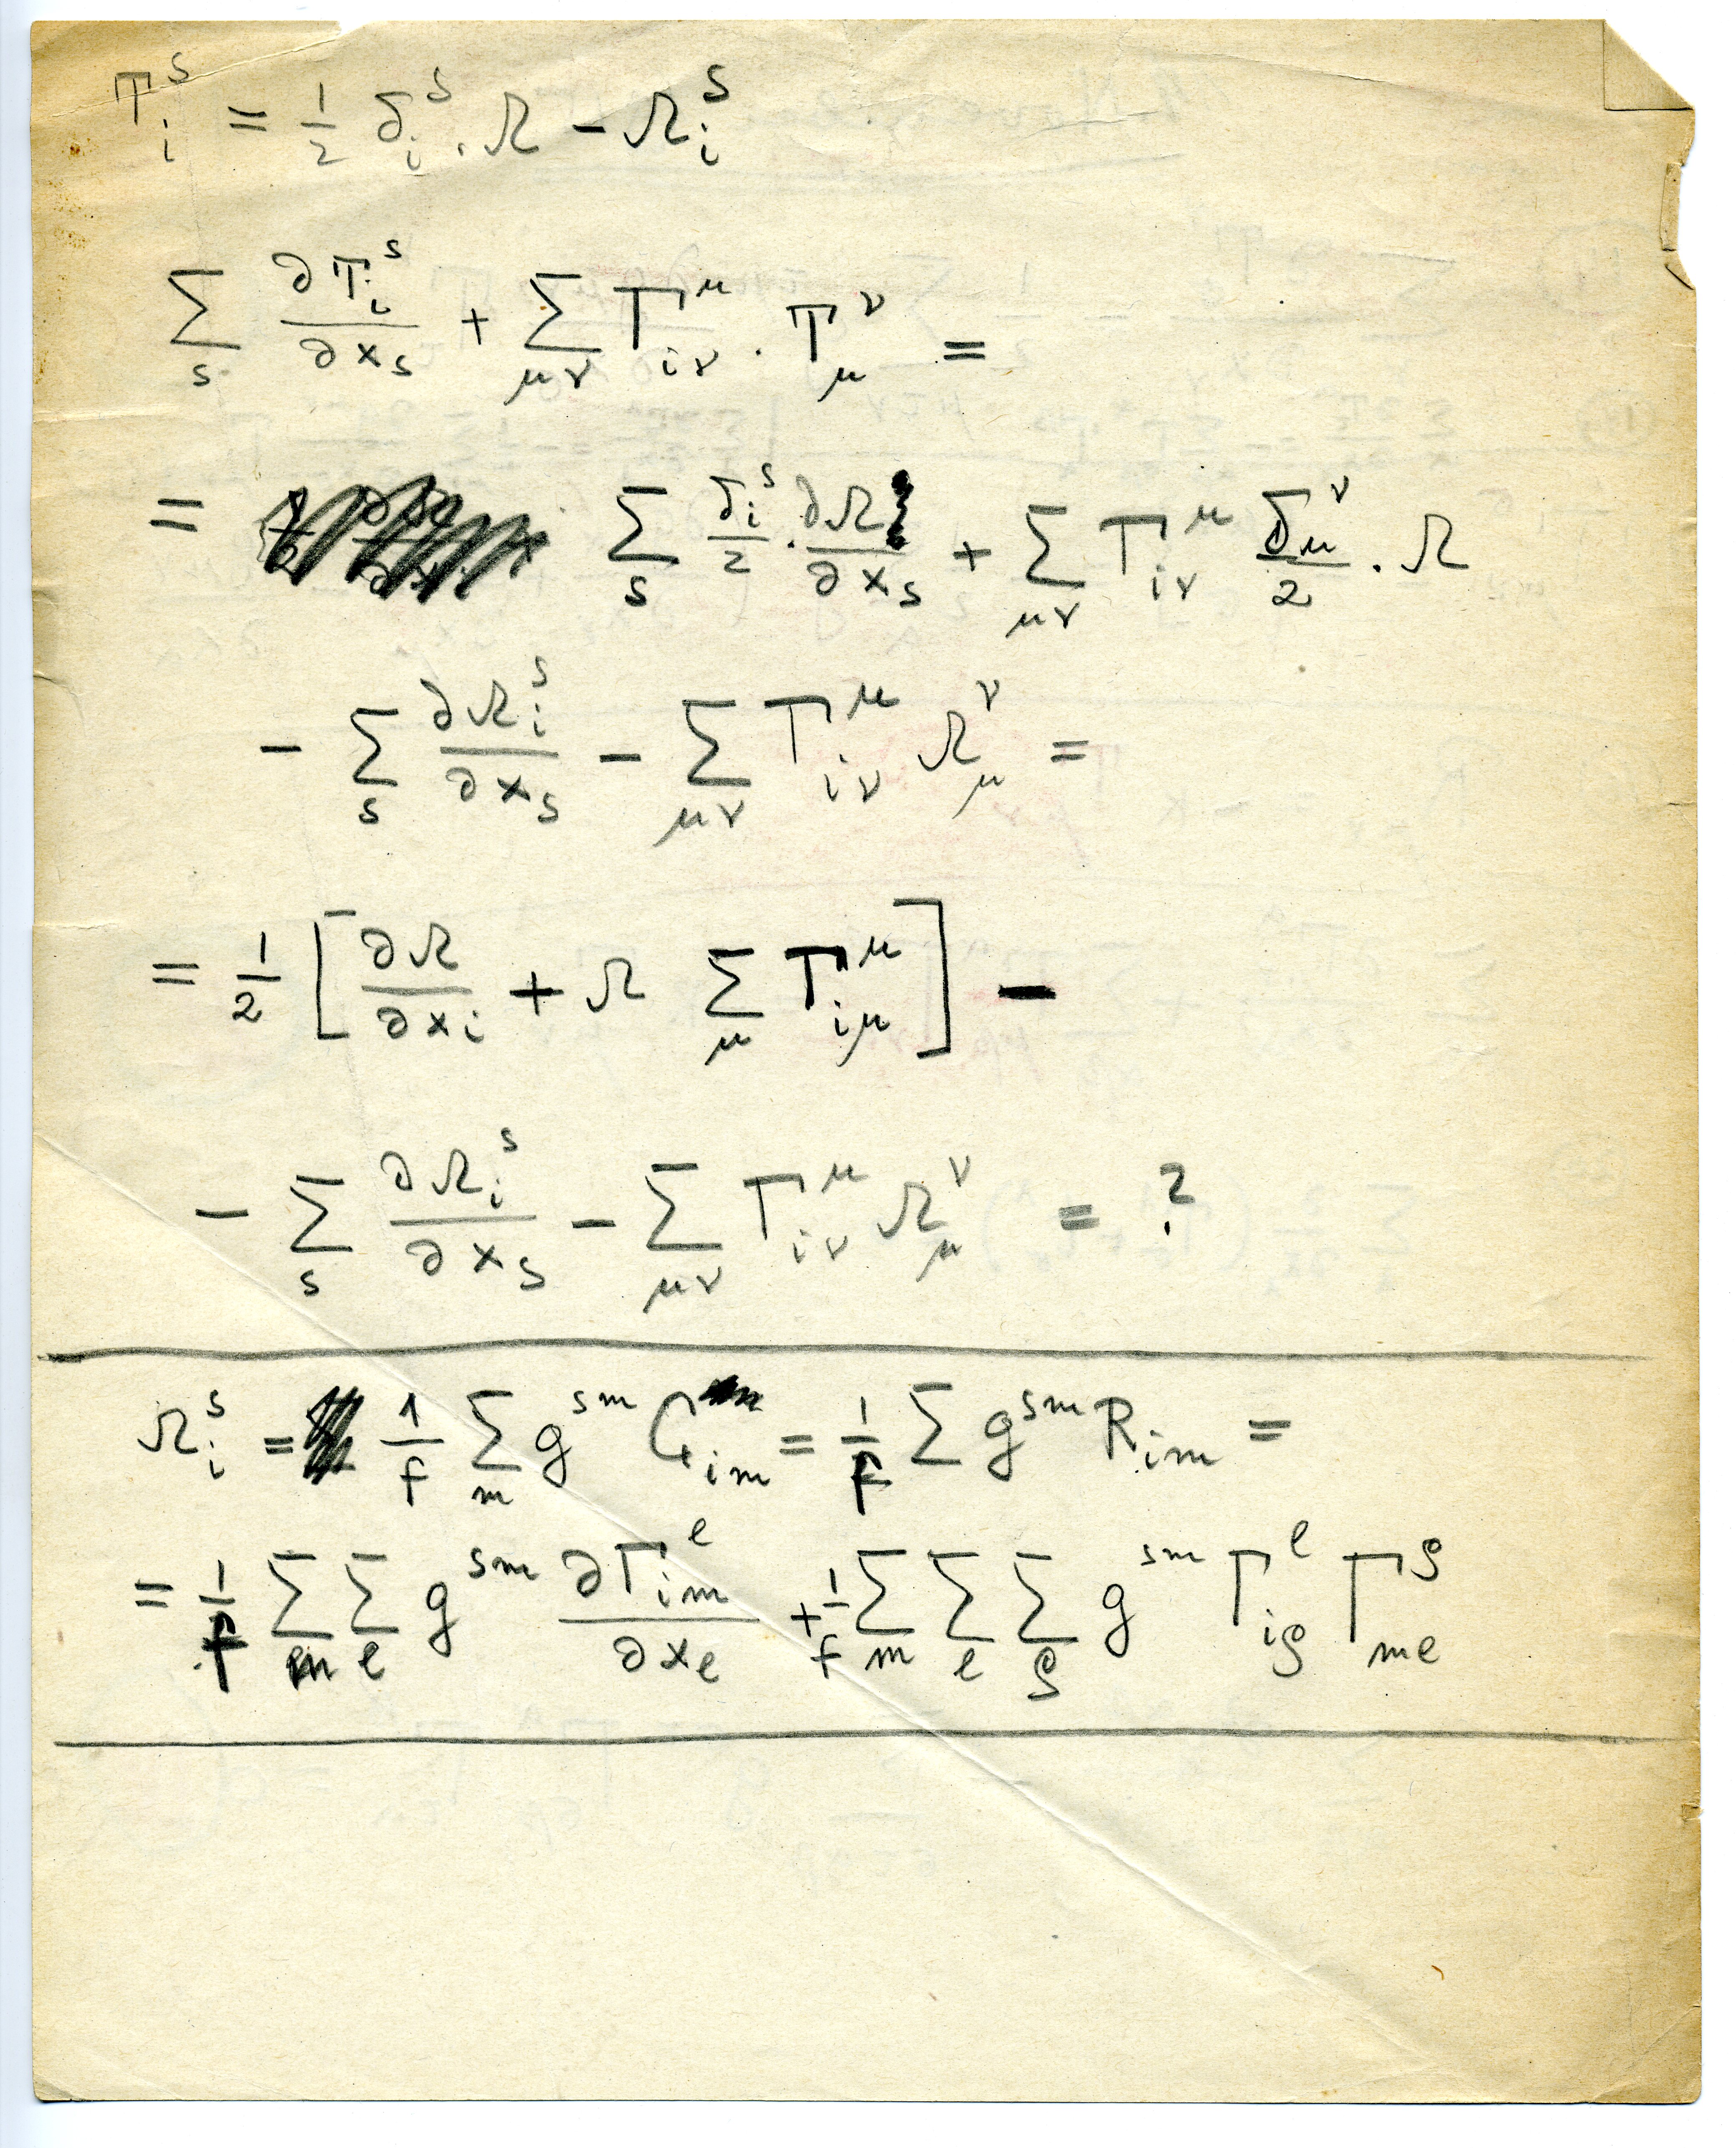 T_i^s = 1/2 δ_i^s . Ω − Ω_i^s
∑_s ∂T_i^s/∂x_s + ∑_{μν} Γ_{iν}^μ . T_μ^ν =
= ∑_s δ_i^s/2 . ∂Ω/∂x_s + ∑_{μν} Γ_{iν}^μ δ_μ^ν/2 . Ω
− ∑_s ∂Ω_i^s/∂x_s − ∑_{μν} Γ_{iν}^μ Ω_μ^ν =
= 1/2 [ ∂Ω/∂x_i + Ω ∑_μ Γ_{iμ}^μ ] −
− ∑_s ∂Ω_i^s/∂x_s − ∑_{μν} Γ_{iν}^μ Ω_μ^ν = ?
Ω_i^s = 1/f ∑_m g^{sm} G_{im} = 1/f ∑ g^{sm} R_{im} =
= 1/f ∑_m ∑_e g^{sm} ∂Γ_{im}^e/∂x_e + 1/f ∑_m ∑_e ∑_ρ g^{sm} Γ_{iρ}^e Γ_{me}^ρ